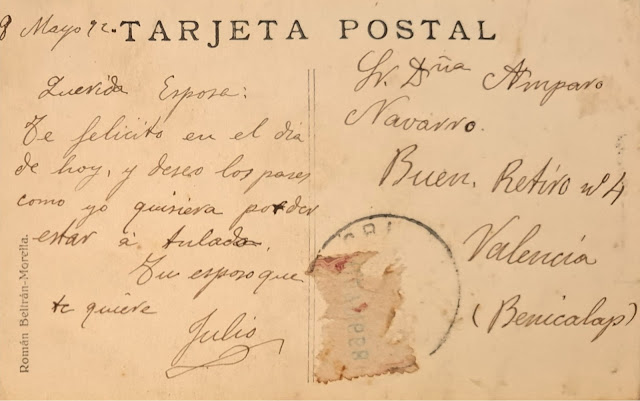 8 Mayo 12. TARJETA POSTAL
Querida Esposa:
Te felicito en el día
de hoy, y deseo los pases
como yo quisiera poder
estar á tu lado.
Tu esposo que
te quiere
Julio
Sr. Dña Amparo
Navarro.
Buen. Retiro nº 4
Valencia
(Benicalap)
Román Beltrán-Morella.